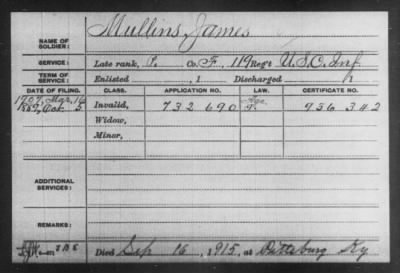 NAME OF SOLDIER: Mullins, James
SERVICE: Late rank, P. Co. F, 119 Reg't U.S.C. Inf
TERM OF SERVICE: Enlisted , 1 Discharged , 1
DATE OF FILING. CLASS. APPLICATION NO. LAW. CERTIFICATE NO.
1907, Mar, 16 Age
1889, Oct. 5. Invalid, 732 690 936 342
Widow,
Minor,
ADDITIONAL SERVICES:
REMARKS:
Died Sep 16, 1915, at Pittsburg Ky